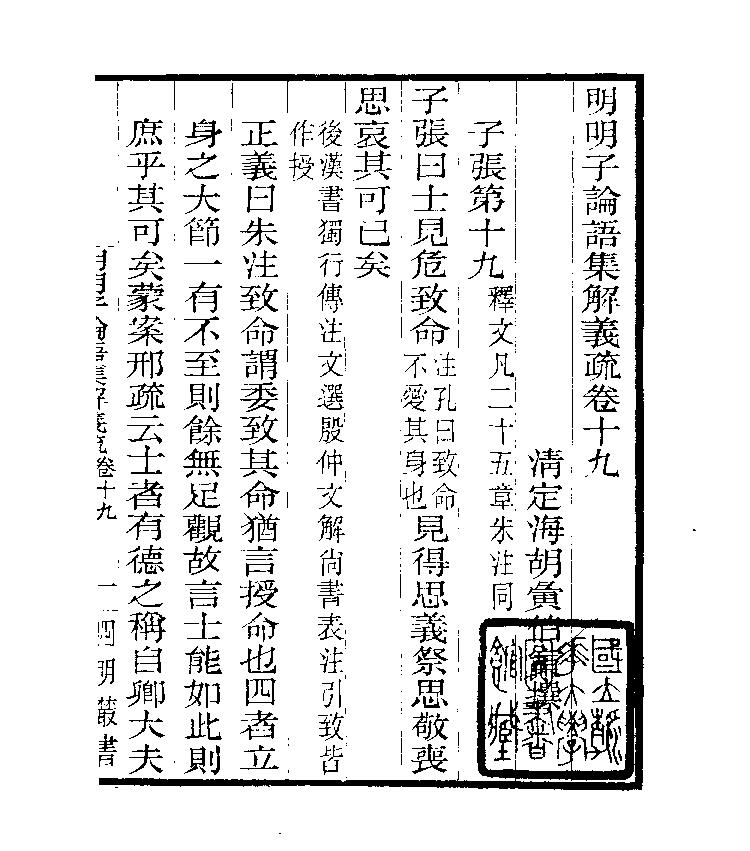 明明子論語集解義疏卷十九
清定海胡夤伯
子張第十九 釋文凡二十五章朱注同
子張曰士見危致命 注孔曰致命不愛其身也 見得思義祭思敬喪
思哀其可已矣
後漢書獨行傳注文選殷仲文解尚書表注引致皆
作授
正義曰朱注致命謂委致其命猶言授命也四者立
身之大節一有不至則餘無足觀故言士能如此則
庶乎其可矣蒙案邢疏云士者有德之稱自卿大夫
明明子論語集解義疏卷十九 一 四明叢書